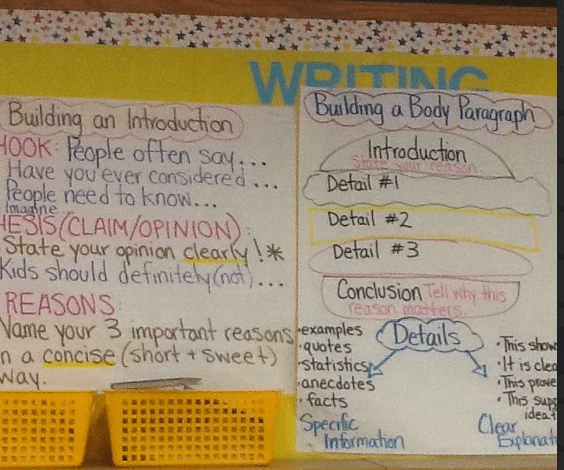 WRITING
Building an Introduction
HOOK: People often say...
Have you ever considered...
People need to know...
Imagine
HESIS (CLAIM/OPINION):
State your opinion clearly! *
Kids should definitely (not)...
REASONS:
Name your 3 important reasons
in a concise (short + sweet)
way.
Building a Body Paragraph
Introduction
State your reason
Detail #1
Detail #2
Detail #3
Conclusion Tell why this
reason matters.
Details
• examples
• quotes
• statistics
• anecdotes
• facts
Specific
Information
• This show
• It is clea
• This prove
• This supp
idea t
Clear
Explanati